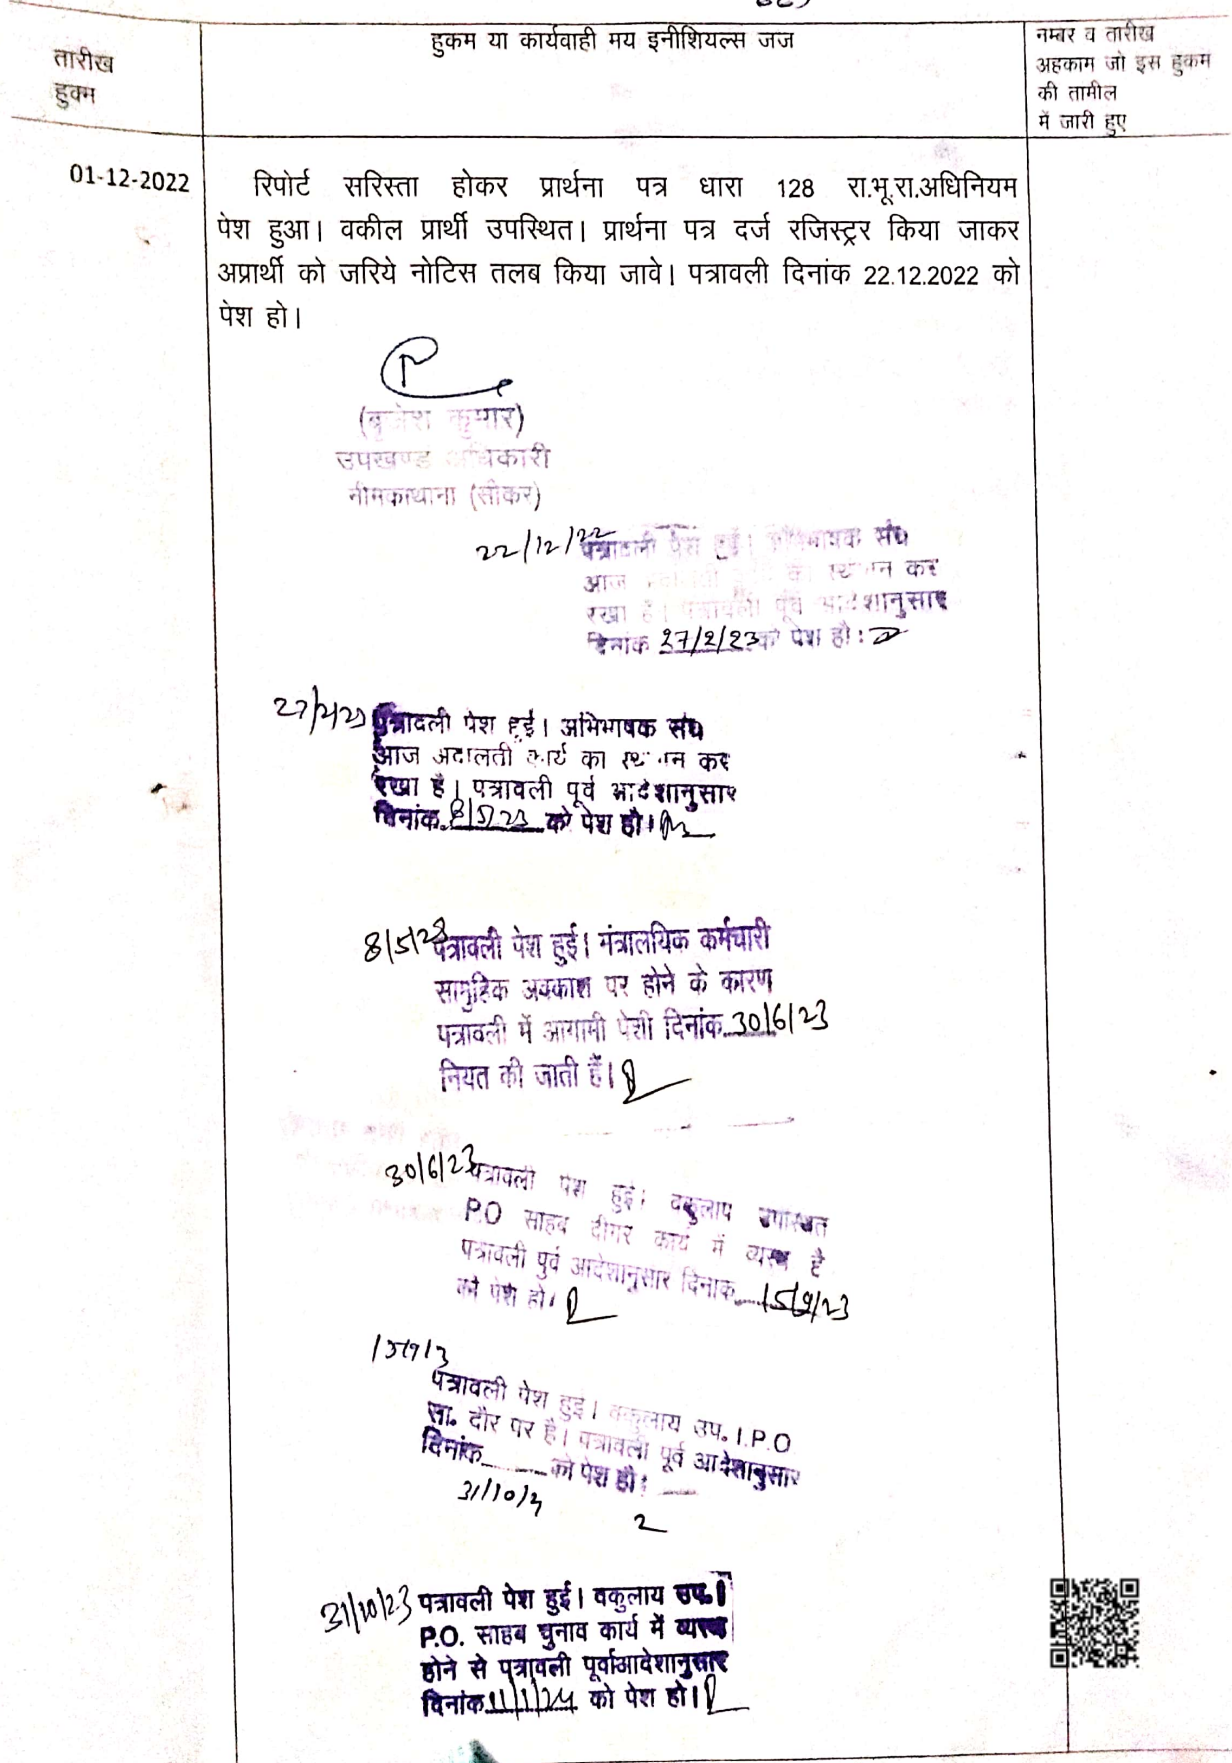 तारीख
हुक्म
हुकम या कार्यवाही मय इनीशियल्स जज
नम्बर व तारीख
अहकाम जो इस हुकम
की तामील
में जारी हुए
01-12-2022
रिपोर्ट सरिस्ता होकर प्रार्थना पत्र धारा 128 रा.भू.रा.अधिनियम
पेश हुआ। वकील प्रार्थी उपस्थित। प्रार्थना पत्र दर्ज रजिस्ट्रर किया जाकर
अप्रार्थी को जरिये नोटिस तलब किया जावे। पत्रावली दिनांक 22.12.2022 को
पेश हो।
(बृजेश कुमार)
उपखण्ड अधिकारी
नीमकाथाना (सीकर)
22/12/22 पत्रावली पेश हुई। अभिभाषक संघ
आज अदालती कार्य का स्थगन कर
रखा है। पत्रावली पूर्व आदेशानुसार
दिनांक 27/2/23 को पेश हो।
27/2/23 पत्रावली पेश हुई। अभिभाषक संघ
आज अदालती कार्य का स्थगन कर
रखा है। पत्रावली पूर्व आदेशानुसार
दिनांक 8/5/23 को पेश हो।
8/5/23 पत्रावली पेश हुई। मंत्रालयिक कर्मचारी
सामुहिक अवकाश पर होने के कारण
पत्रावली में आगामी पेशी दिनांक 30/6/23
नियत की जाती हैं।
30/6/23 पत्रावली पेश हुई। वकुलाय उपस्थित
P.O साहब दीगर कार्य में व्यस्थ है
पत्रावली पुर्व आदेशानुसार दिनांक 15/9/23
को पेश हो।
15/9/3
पत्रावली पेश हुई। वकुलाय उप. I.P.O
सा. दौर पर है। पत्रावली पूर्व आदेशानुसार
दिनांक को पेश हो।
31/10/3
31/10/23 पत्रावली पेश हुई। वकुलाय उप.।
P.O. साहब चुनाव कार्य में व्यस्थ
होने से पत्रावली पूर्वाआदेशानुसार
दिनांक 11/1/24 को पेश हो।